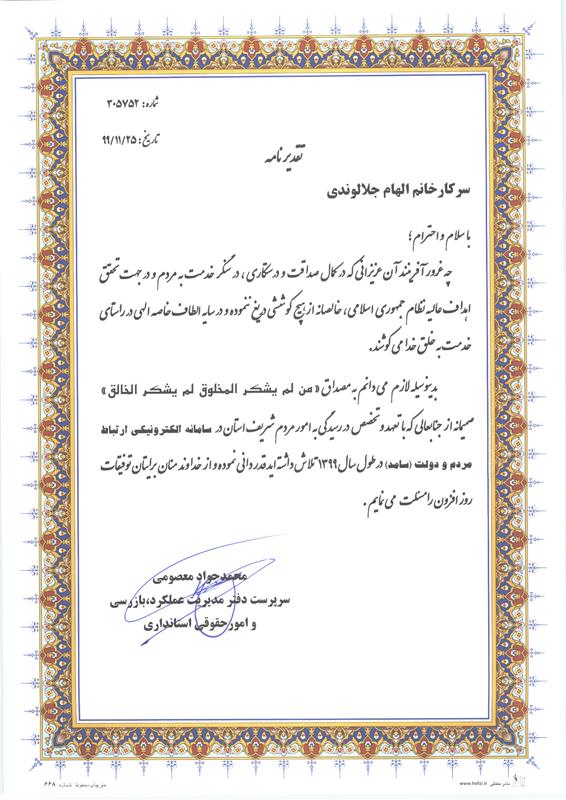 شماره: ۳۰۵۷۵۲
تاریخ: ۹۹/۱۱/۲۵
تقدیر نامه
سرکار خانم الهام جلالوندی
با سلام و احترام؛
چه غرور آفرینند آن عزیزانی که در کمال صداقت و درستکاری، در سنگر خدمت به مردم و در جهت تحقق
اهداف عالیه نظام جمهوری اسلامی، خالصانه از هیچ کوششی دریغ ننموده و در سایه الطاف خاصه الهی در راستای
خدمت به خلق خدا می کوشند.
بدینوسیله لازم می دانم به مصداق «من لم یشکر المخلوق لم یشکر الخالق»
صمیمانه از جنابعالی که با تعهد و تخصص در رسیدگی به امور مردم شریف استان در سامانه الکترونیکی ارتباط
مردم و دولت (سامد) در طول سال ۱۳۹۹ تلاش داشته اید قدردانی نموده و از خداوند منان برایتان توفیقات
روز افزون را مسئلت می نمایم.
محمدجواد معصومی
سرپرست دفتر مدیریت عملکرد، بازرسی
و امور حقوقی استانداری
حق چاپ محفوظ شماره: ۶۶۸
نشر حافظی www.hafzi.ir